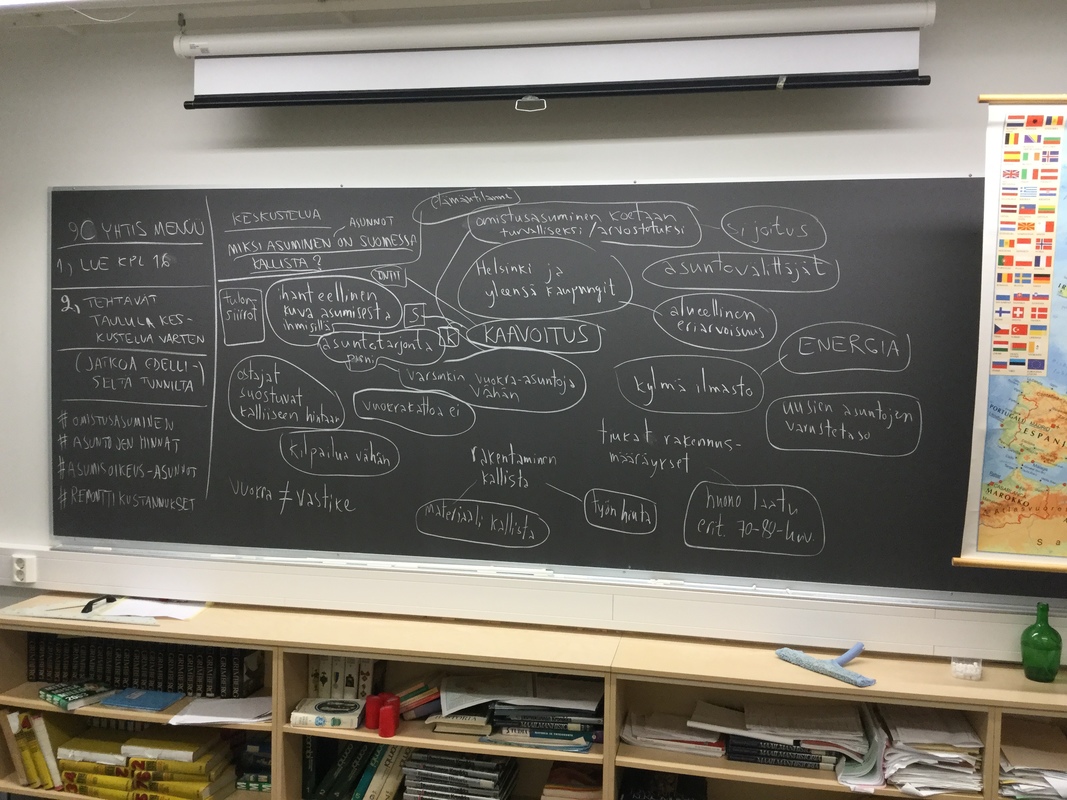 9C YHTIS MENUU
1, LUE KPL 16
2, TEHTÄVÄT
TAULULA KES-
KUSTELUA VARTEN
(JATKOA EDELLI-)
SELTÄ TUNNILTA
# OMISTUSASUMINEN
# ASUNTOJEN HINNAT
# ASUMISOIKEUS-ASUNNOT
# REMONTTIKUSTANNUKSET
KESKUSTELUA ASUNNOT
MIKSI ASUMINEN ON SUOMESSA
KALLISTA?
elämäntilanne
omistusasuminen koetaan
turvalliseksi / arvostetuksi
sijoitus
tulon-
siirrot
ihanteellinen
kuva asumisesta
ihmisillä
S
K
Helsinki ja
yleensä kaupungit
asuntovälittäjät
alueellinen
eriarvoisuus
KAAVOITUS
asuntotarjonta
pieni
varsinkin vuokra-asuntoja
vähän
ENERGIA
kylmä ilmasto
ostajat
suostuvat
kalliiseen hintaan
vuokrakattoa ei
uusien asuntojen
varustetaso
kilpailua vähän
rakentaminen
kallista
tiukat rakennus-
määräykset
vuokra ≠ vastike
materiaali kallista
työn hinta
huono laatu
erit. 70-80-luv.
PORTUGALI
ESPANJ
MAROKKO
S a